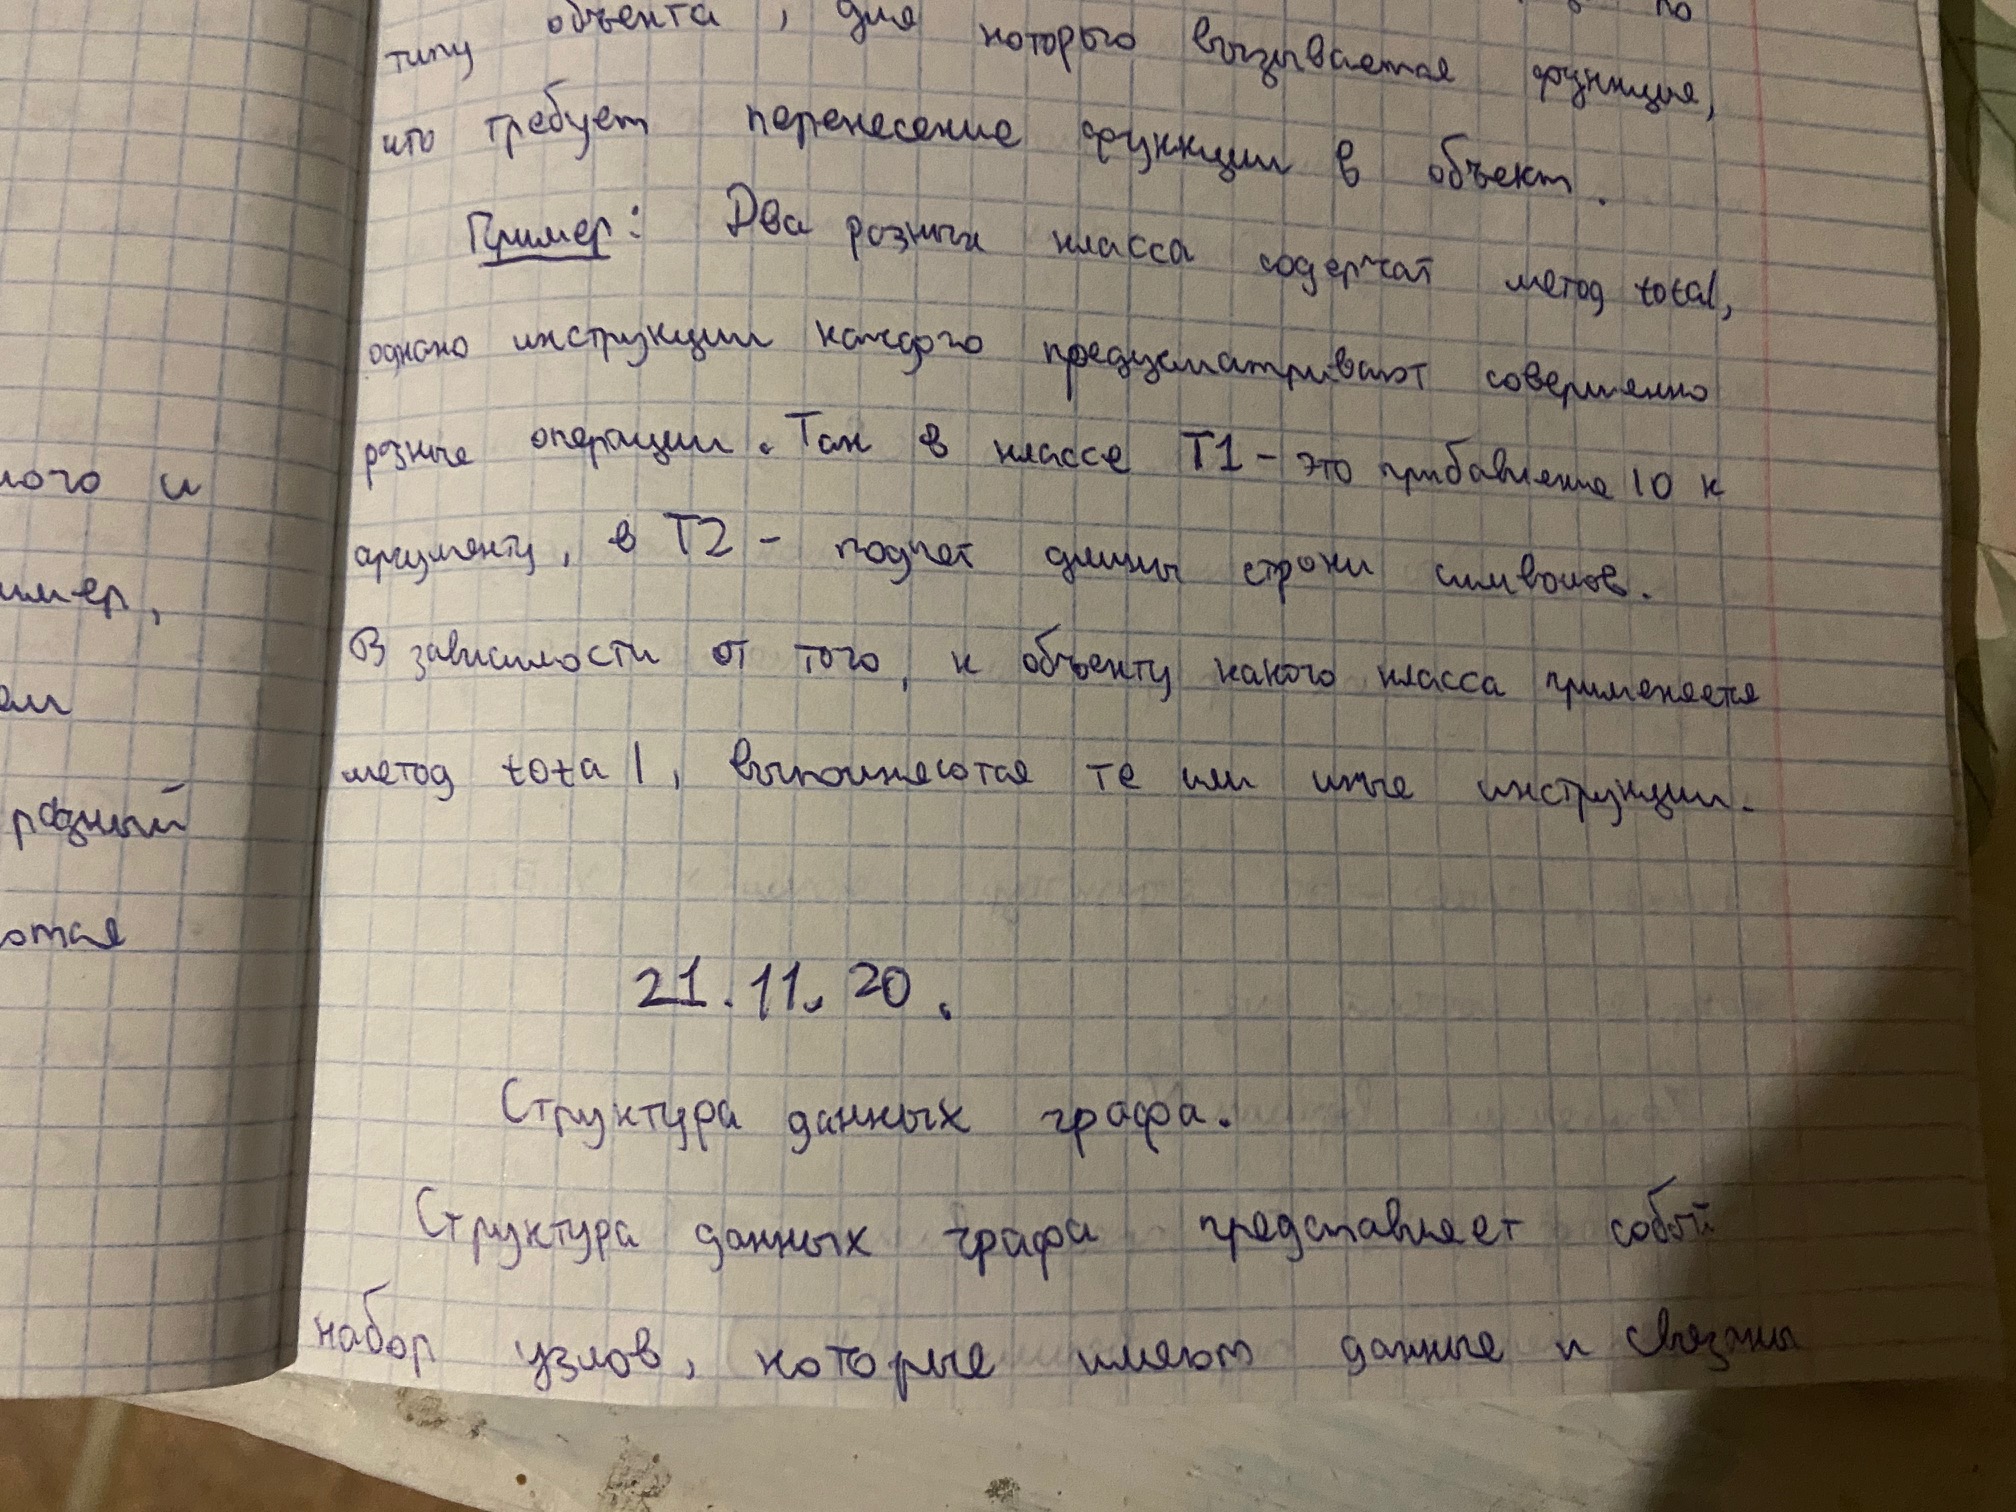 ного и
ример,
ам
разный
ются
типу объекта, для которого вызывается функция,
что требует перенесение функции в объект.
Пример: Два разных класса содержат метод total,
однако инструкции каждого предусматривают совершенно
разные операции. Так в классе T1 - это прибавление 10 к
аргументу, в T2 - подчет длины строки символов.
В зависимости от того, к объекту какого класса применяется
метод total, выполняются те или иные инструкции.
21.11.20.
Структура данных графа.
Структура данных графа представляет собой
набор узлов, которые имеют данные и связаны